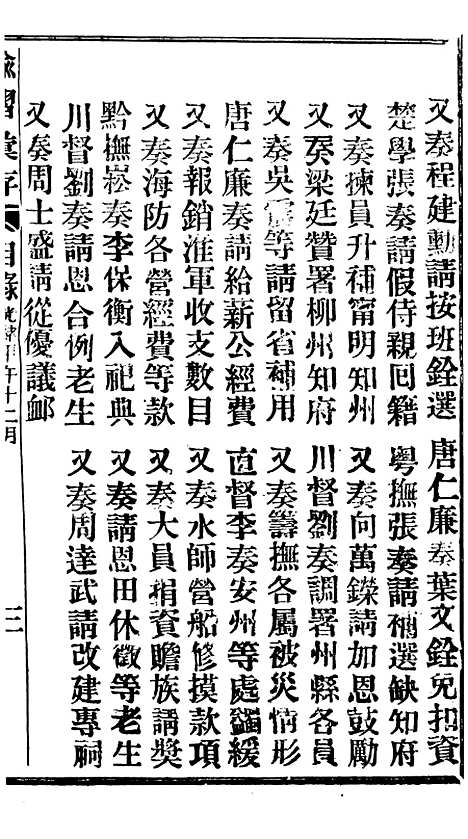 又奏程建勳請按班銓選　唐仁廉奏葉文銓免扣資
楚學張奏請假侍親回籍　粵撫張奏請補選缺知府
又奏揀員升補甯明知州　又奏向萬鑅請加恩鼓勵
又奏梁廷贊署柳州知府　川督劉奏調署州縣各員
又奏吳震等請留省補用　又奏籌撫各屬被災情形
唐仁廉奏請給薪公經費　直督李奏安州等處蠲緩
又奏報銷淮軍收支數目　又奏水師營船修摸款項
又奏海防各營經費等款　又奏大員捐資贍族請獎
黔撫崧奏李保衡入祀典　又奏請恩田休徵等老生
川督劉奏請恩合例老生　又奏周達武請改建專祠
又奏周士盛請從優議卹
諭摺彙存　目錄　光緒甲午十二月　三